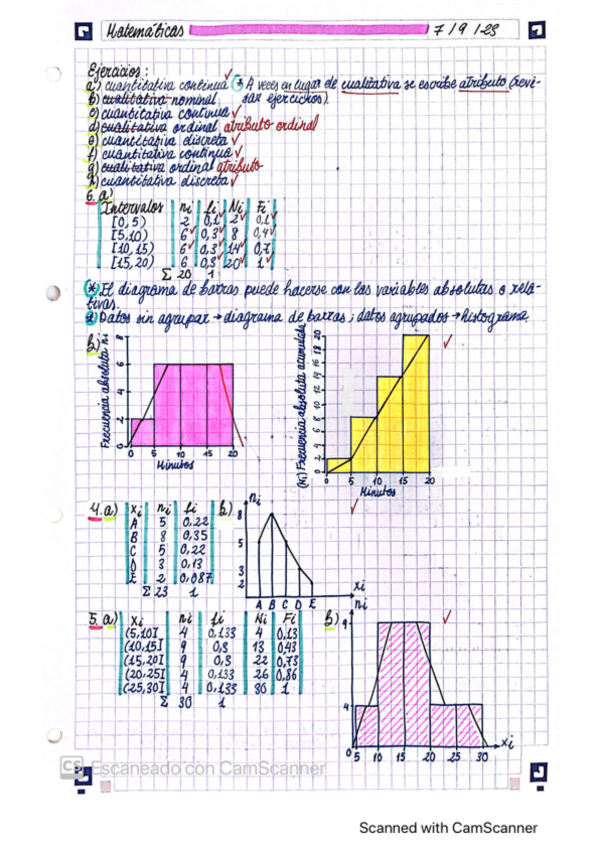 Matemáticas 7/9/23
Ejercicios:
a) cuantitativa continua * A veces en lugar de cualitativa se escribe atributo (revi-
b) cualitativa nominal sar ejercicios).
c) cuantitativa continua
d) cualitativa ordinal atributo ordinal
e) cuantitativa discreta
f) cuantitativa continua
g) cualitativa ordinal atributo
h) cuantitativa discreta
6. a)
Intervalos ni fi Ni Fi
[0, 5) 2 0,1 2 0,1
[5,10) 6 0,3 8 0,4
[10, 15) 6 0,3 14 0,7
[15, 20) 6 0,3 20 1
Σ 20 1
* El diagrama de barras puede hacerse con las variables absolutas o rela-
tivas.
* Datos sin agrupar → diagrama de barras; datos agrupados → histograma.
b)
Frecuencia absoluta ni
8
6
4
2
0
0 5 10 15 20
Minutos
(Ni) Frecuencia absoluta acumulada
20
18
16
14
12
10
8
6
4
2
0
0 5 10 15 20
Minutos
4. a) xi ni fi b) ni
A 5 0,22
B 8 0,35
C 5 0,22
D 3 0,13
E 2 0,087
Σ 23 1
8
5
3
2
A B C D E
xi
5. a) xi ni fi Ni Fi b) ni
(5,10] 4 0,133 4 0,13
(10,15] 9 0,3 13 0,43
(15,20] 9 0,3 22 0,73
(20,25] 4 0,133 26 0,86
(25,30] 4 0,133 30 1
Σ 30 1
9
4
0 5 10 15 20 25 30
xi
CS Escaneado con CamScanner
Scanned with CamScanner